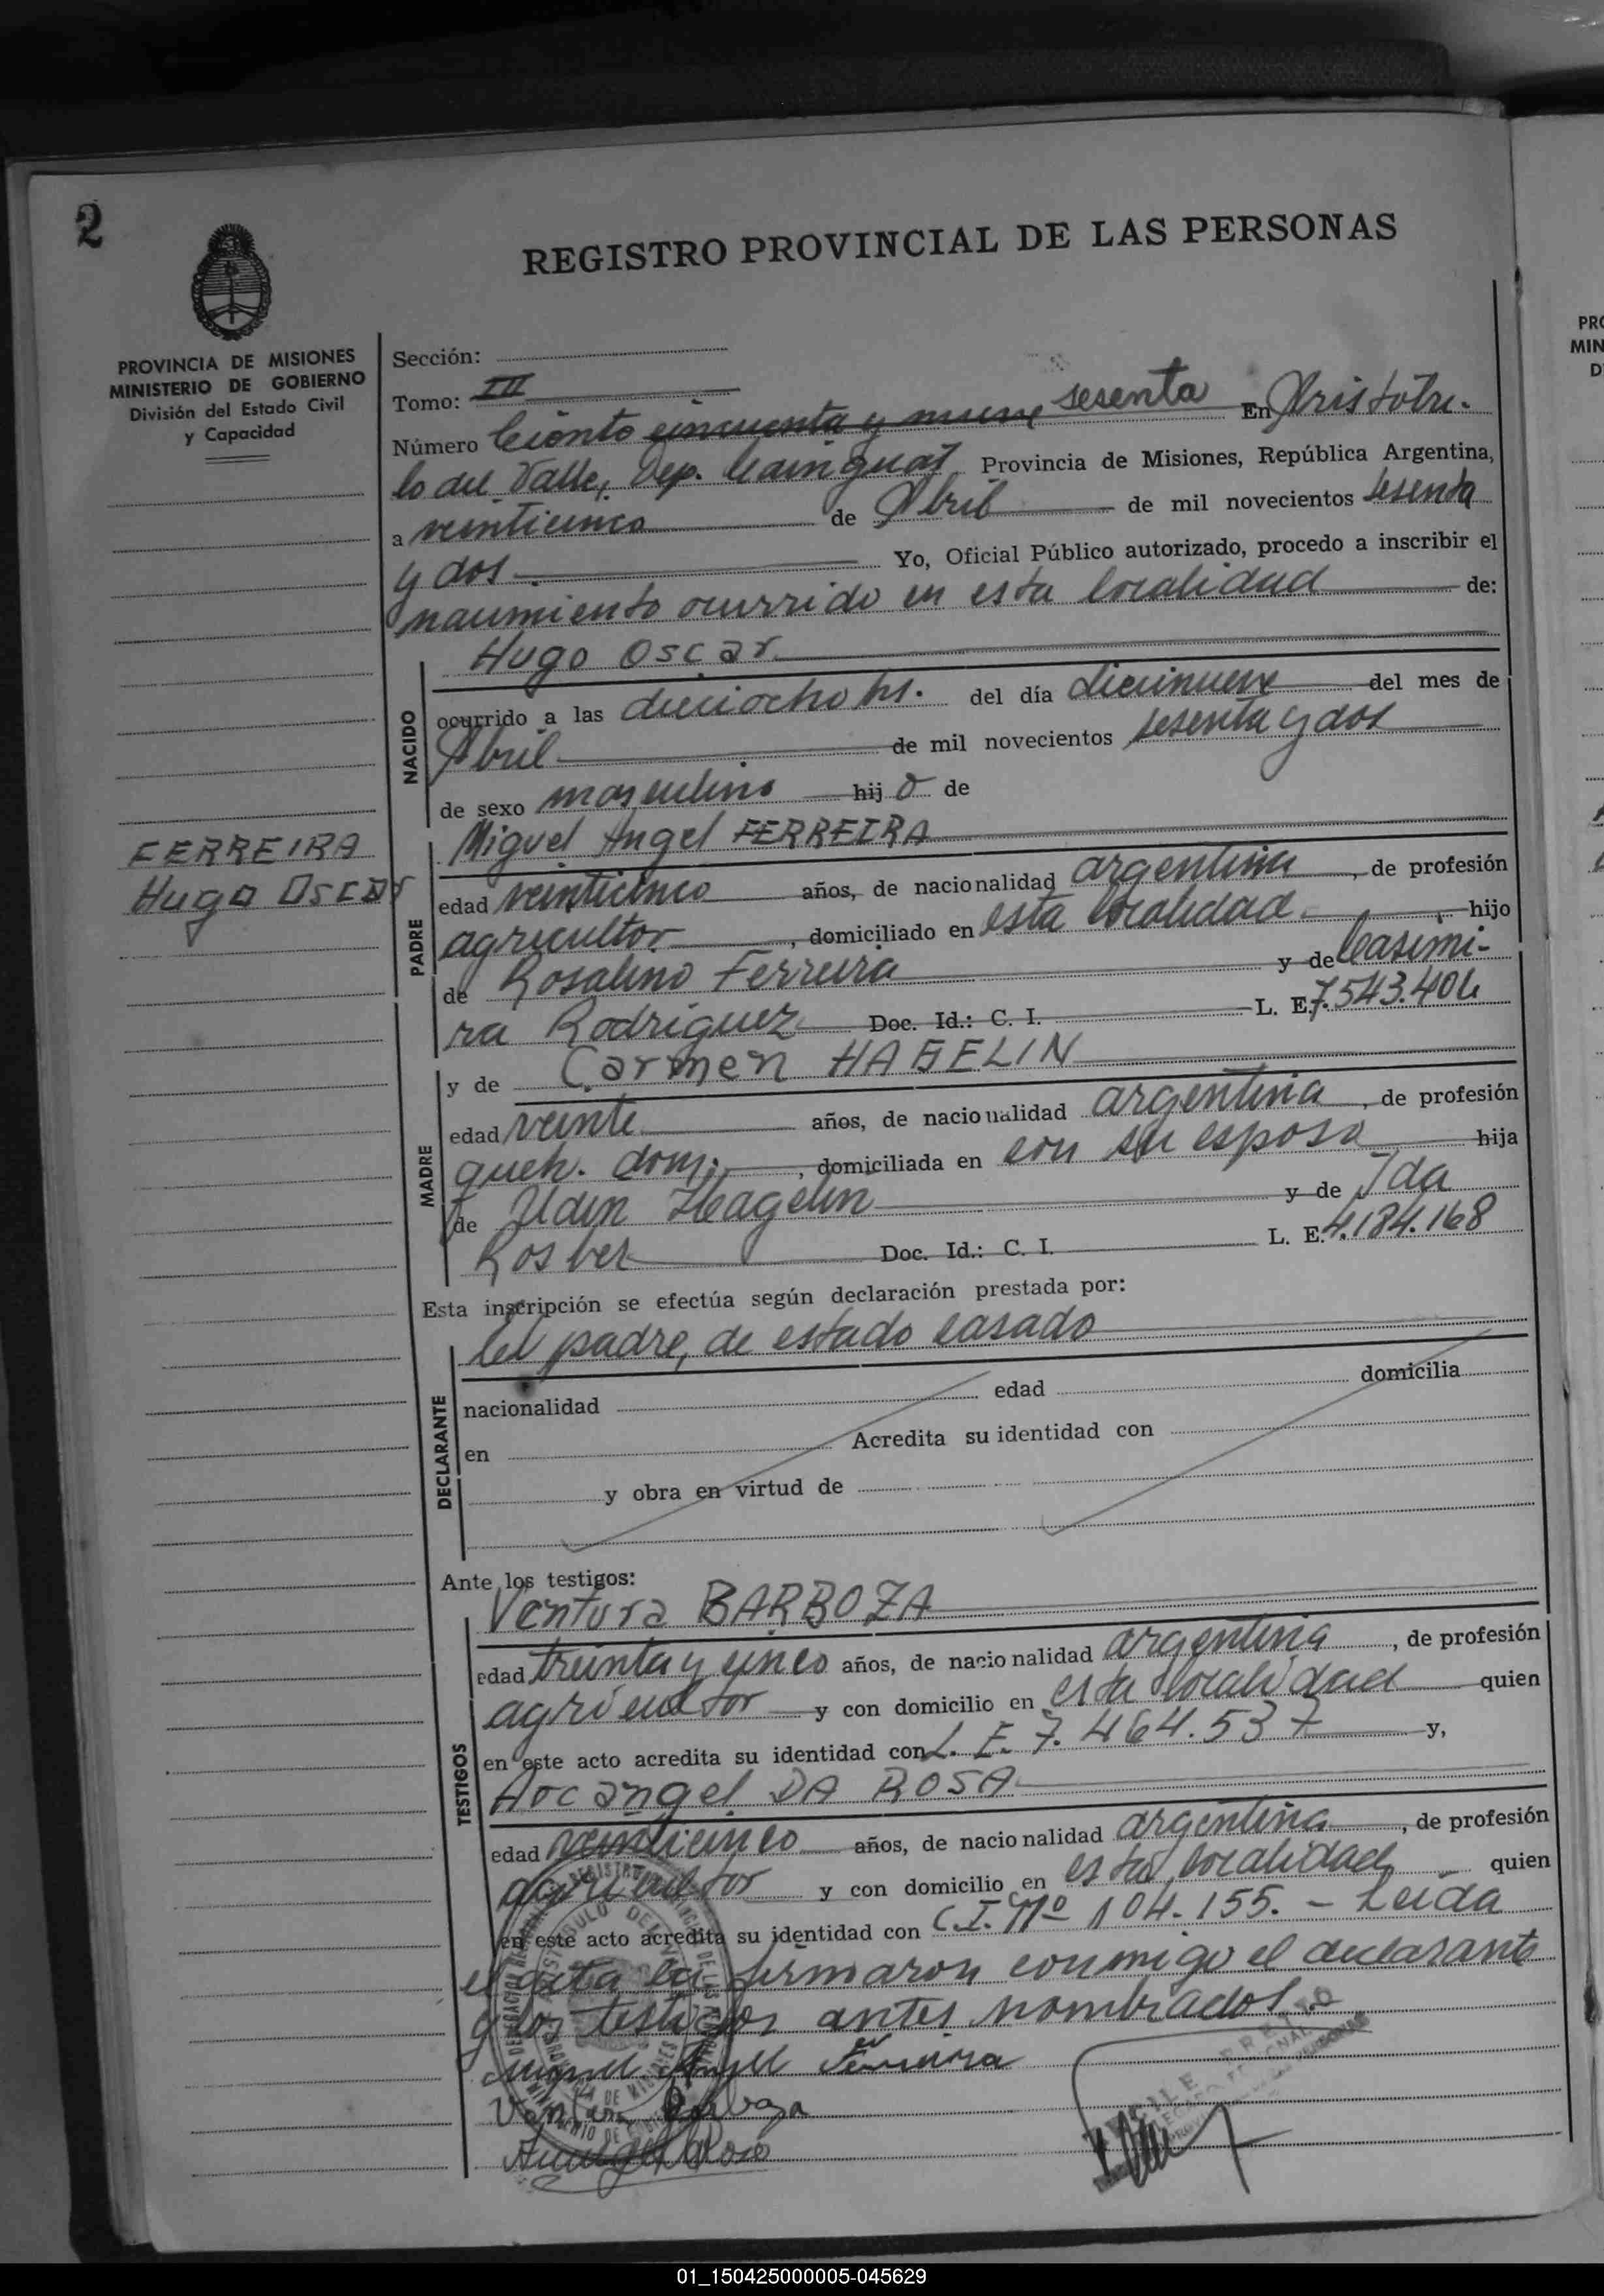 2
REGISTRO PROVINCIAL DE LAS PERSONAS
PROVINCIA DE MISIONES
MINISTERIO DE GOBIERNO
División del Estado Civil
y Capacidad
FERREIRA
Hugo Oscar
Sección:
Tomo: III
Número Ciento cincuenta y nueve sesenta En Aristóbu-
lo del Valle, Dep. Cainguas Provincia de Misiones, República Argentina,
a veinticinco de Abril de mil novecientos sesenta
y dos Yo, Oficial Público autorizado, procedo a inscribir el
nacimiento ocurrido en esta localidad de:
Hugo Oscar
NACIDO
ocurrido a las dieciocho hs. del día diecinueve del mes de
Abril de mil novecientos sesenta y dos
de sexo masculino hij o de
Miguel Angel FERREIRA
PADRE
edad veinticinco años, de nacionalidad argentina, de profesión
agricultor, domiciliado en esta localidad, hijo
de Rosalino Ferreira y de Casimi-
ra Rodriguez Doc. Id.: C. I. L. E. 7.543.406
y de Carmen HAGELIN
MADRE
edad veinte años, de nacionalidad argentina, de profesión
queh. dom., domiciliada en con su esposo hija
de Hagelin y de Ida
Doc. Id.: C. I. L. E. 4.184.168
Esta inscripción se efectúa según declaración prestada por:
el padre, de estado casado
DECLARANTE
nacionalidad edad domicilia
en Acredita su identidad con
y obra en virtud de
Ante los testigos:
Ventura BARBOZA
TESTIGOS
edad treinta y cinco años, de nacionalidad argentina, de profesión
agricultor y con domicilio en esta localidad quien
en este acto acredita su identidad con L. E. 7.464.537 y,
Arcangel DA ROSA
edad veinticinco años, de nacionalidad argentina, de profesión
agricultor y con domicilio en esta localidad quien
en este acto acredita su identidad con C.I. Nº 104.155. - Leida
el acta, la firmaron conmigo el declarante
y los testigos antes nombrados.
Miguel Angel Ferreira
Ventura Barboza
PRO
MIN
D
01_150425000005-045629